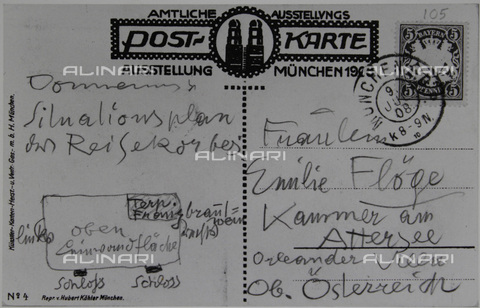 105
AMTLICHE AUSSTELLUNGS
POST-KARTE
AUSSTELLUNG MÜNCHEN 1908
BAYERN
5 5
PFENNIG
MÜNCHEN
9
JUN
08
K 8-9 N.
Situationsplan
des Reisekorbes
links
oben
Leinwandfläche
Terp.
Schloss Schloss
Fräulein
Emilie Flöge
Kammer am
Attersee
Oleander
Ob. Österreich
Künstler-Karten-Herst.- u. Vertr. Ges. m. b. H. München.
No 4
Repr. v. Hubert Köhler München.
ALINARI
ALINARI
ALINARI
ALINARI
ALINARI
ALINARI